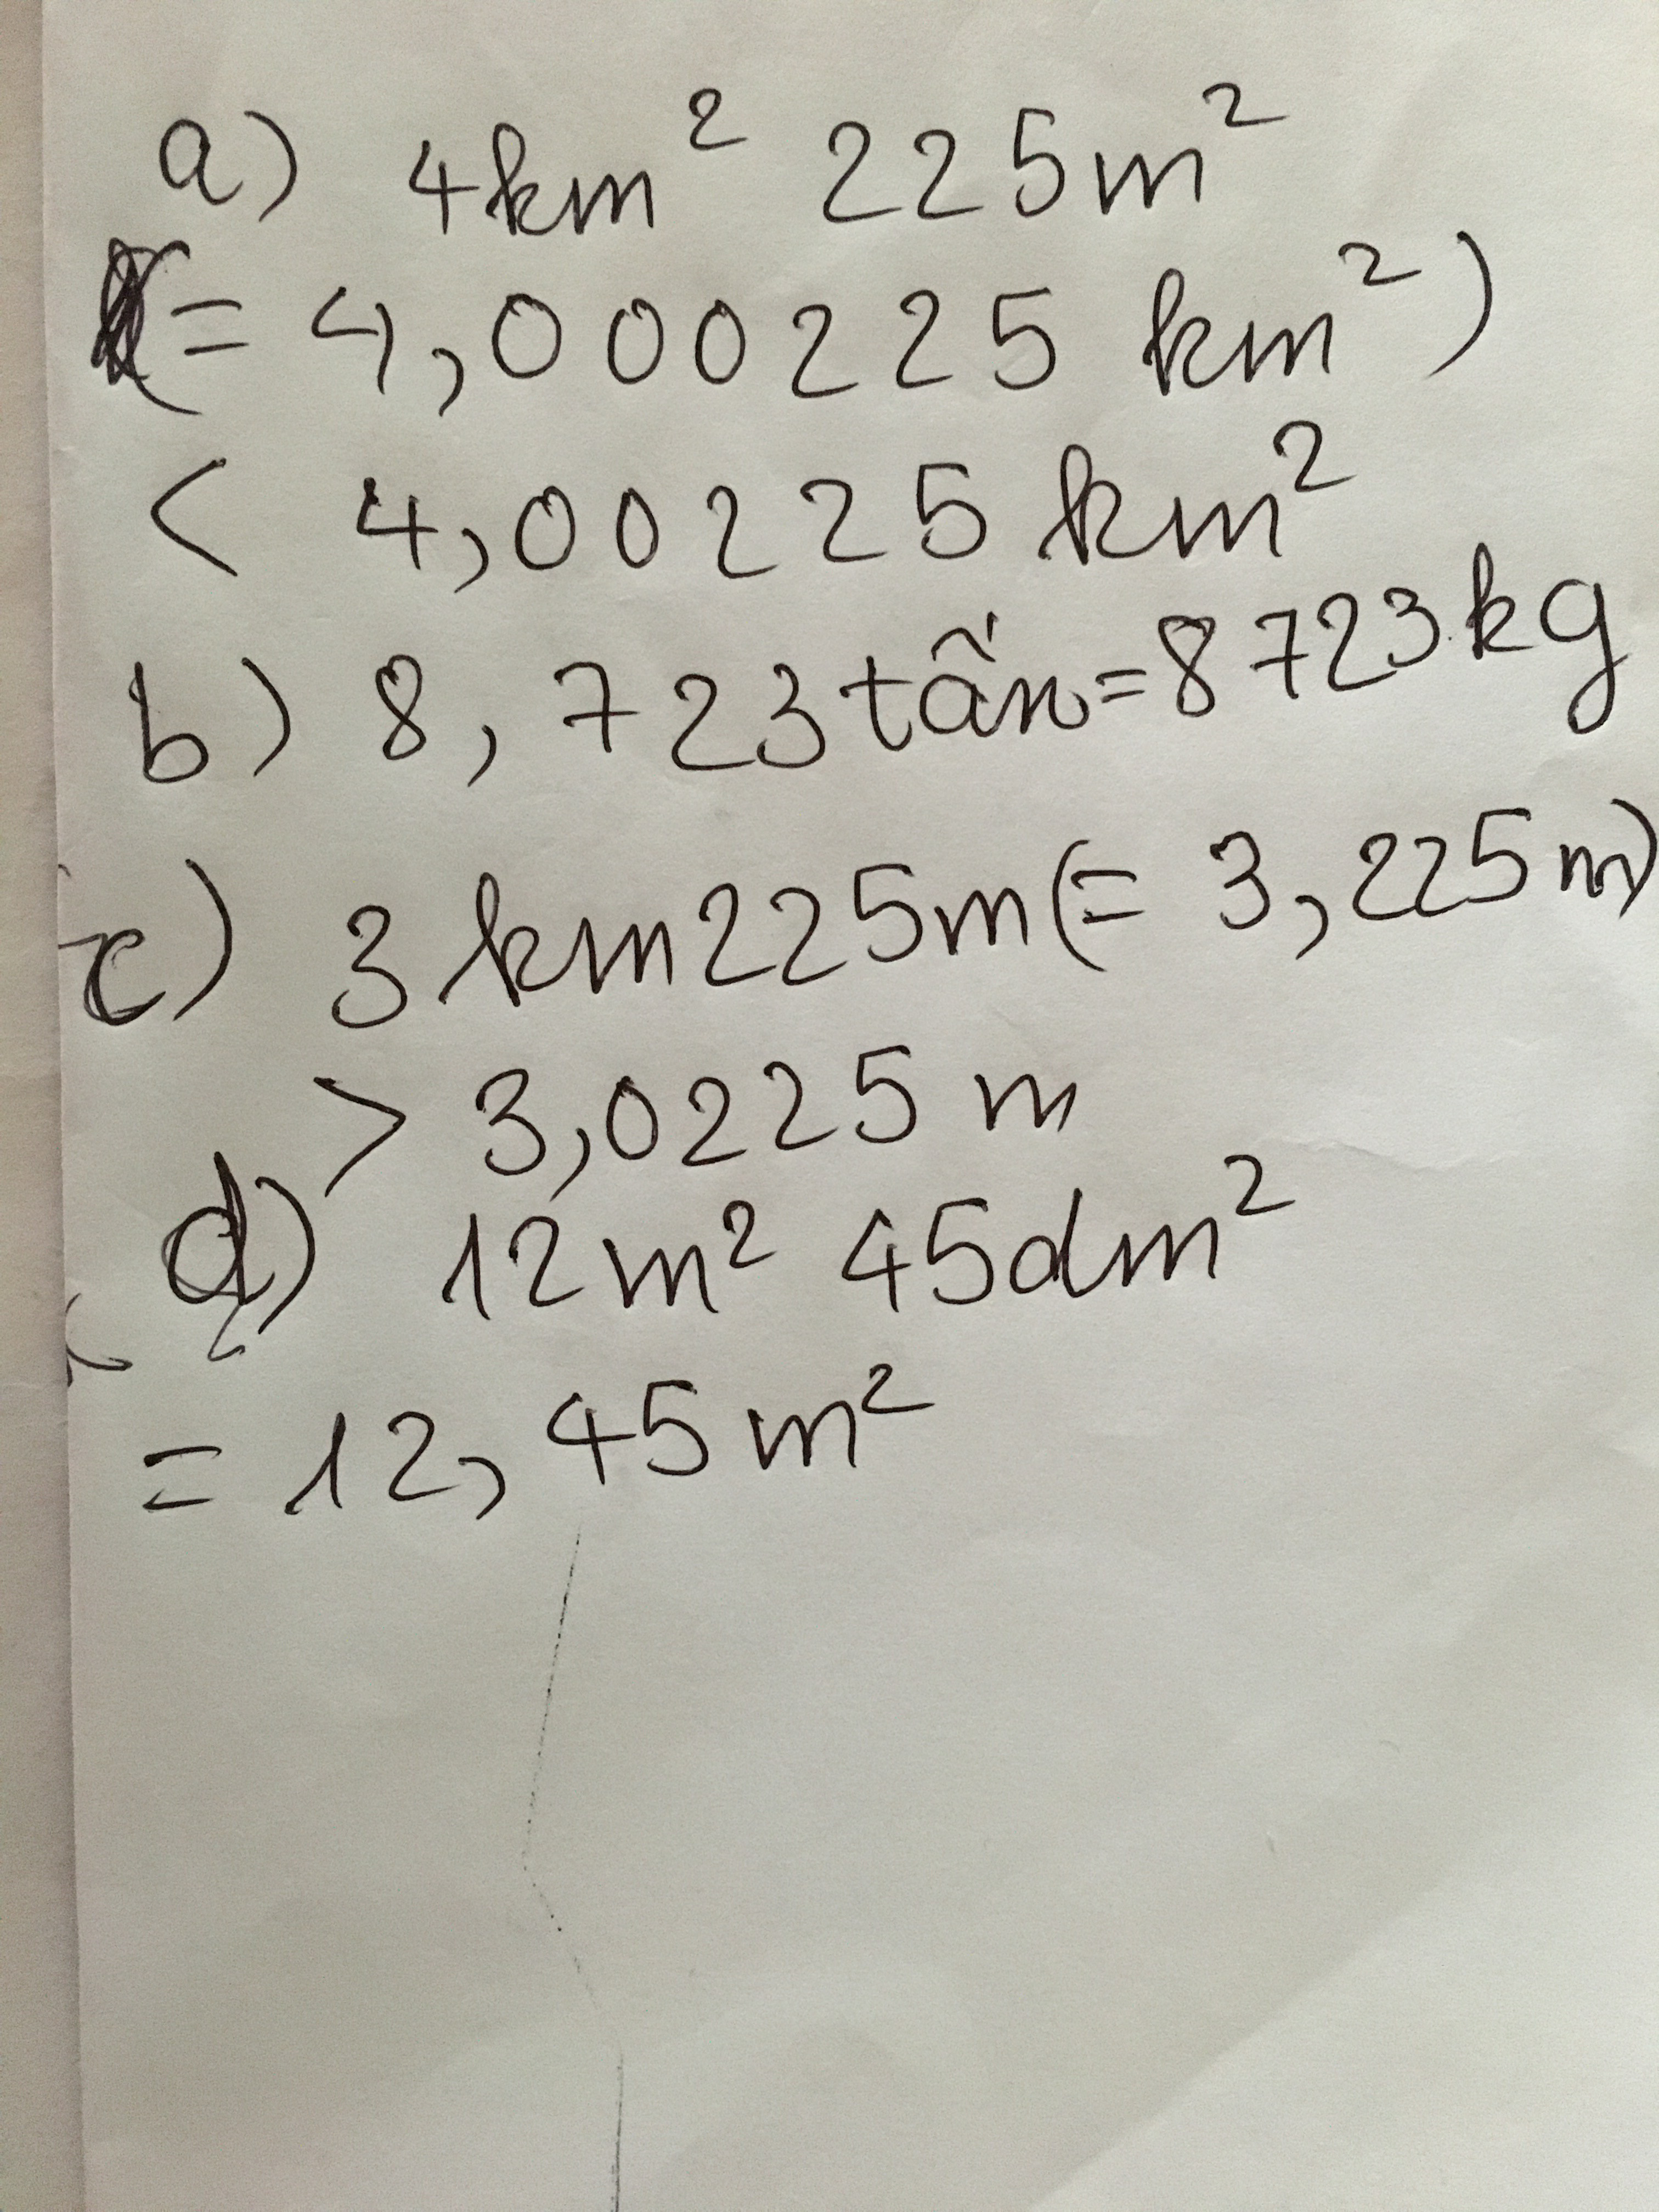 a) 4km² 225m²
(= 4,000225 km²)
< 4,00225 km²
b) 8,723 tấn = 8723 kg
c) 3 km 225m (= 3,225 m)
> 3,0225 m
d) 12 m² 45 dm²
= 12,45 m²